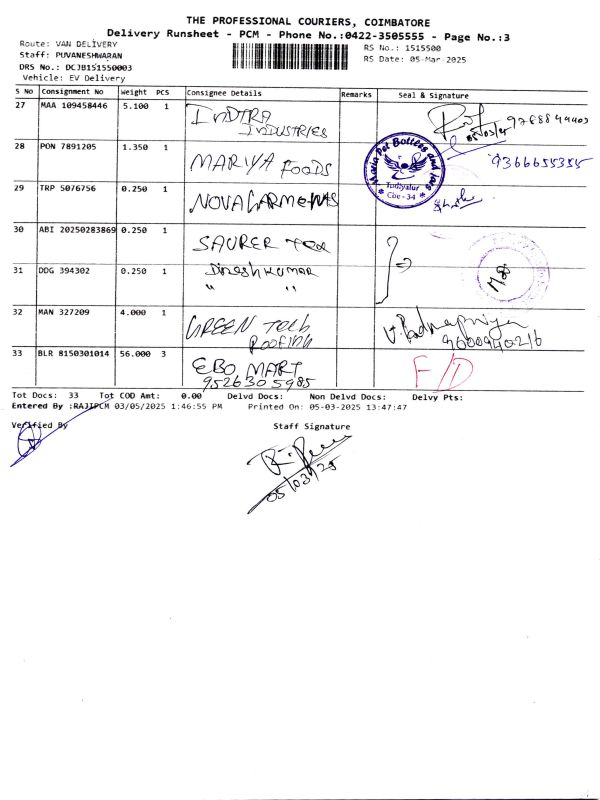 THE PROFESSIONAL COURIERS, COIMBATORE
Delivery Runsheet - PCM - Phone No.:0422-3505555 - Page No.:3
Route: VAN DELIVERY
RS No.: 1515500
Staff: PUVANESHWARAN
RS Date: 05-Mar-2025
DRS No.: DCJB151550003
Vehicle: EV Delivery
S No Consignment No Weight PCS Consignee Details Remarks Seal & Signature
27 MAA 109458446 5.100 1 INDTRA INDUSTRIES
05/03/25
28 PON 7891205 1.350 1 MARIYA FOODS 9366655355
Maria Pet Bottles and Jars
Tudiyalur
Cbe - 34
29 TRP 5076756 0.250 1 NOVA GARMENTS
30 ABI 20250283869 0.250 1 SAURER Tex
31 DDG 394302 0.250 1 Dineshkumar
" "
32 MAN 327209 4.000 1 GREEN Tech ROOFING V. Padmapriya
9600940216
33 BLR 8150301014 56.000 3 EBO MART F/D
9526305985
Tot Docs: 33 Tot COD Amt: 0.00 Delvd Docs: Non Delvd Docs: Delvy Pts:
Entered By :RAJIPCM 03/05/2025 1:46:55 PM Printed On: 05-03-2025 13:47:47
Verified By Staff Signature
05/03/25